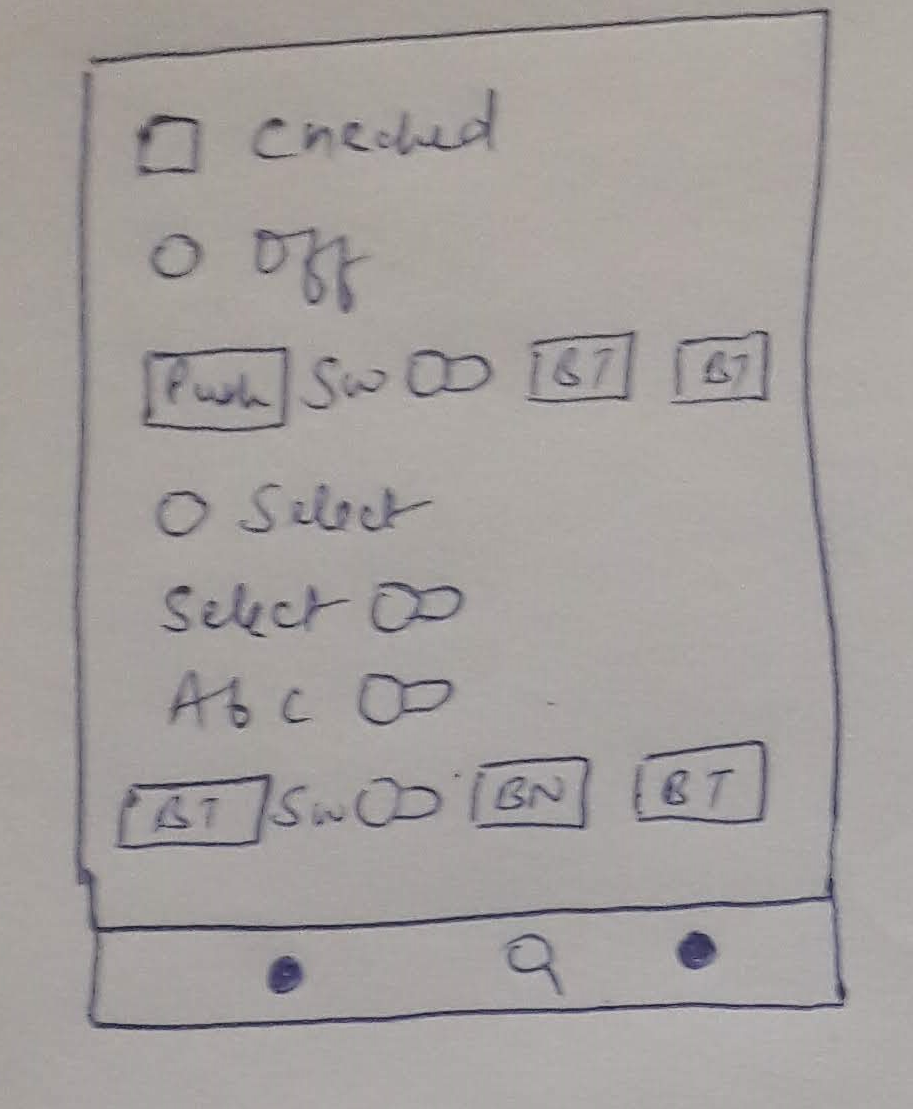 Checked
Off
Push Sw BT BT
Select
Select
Abc
BT Sw BN BT